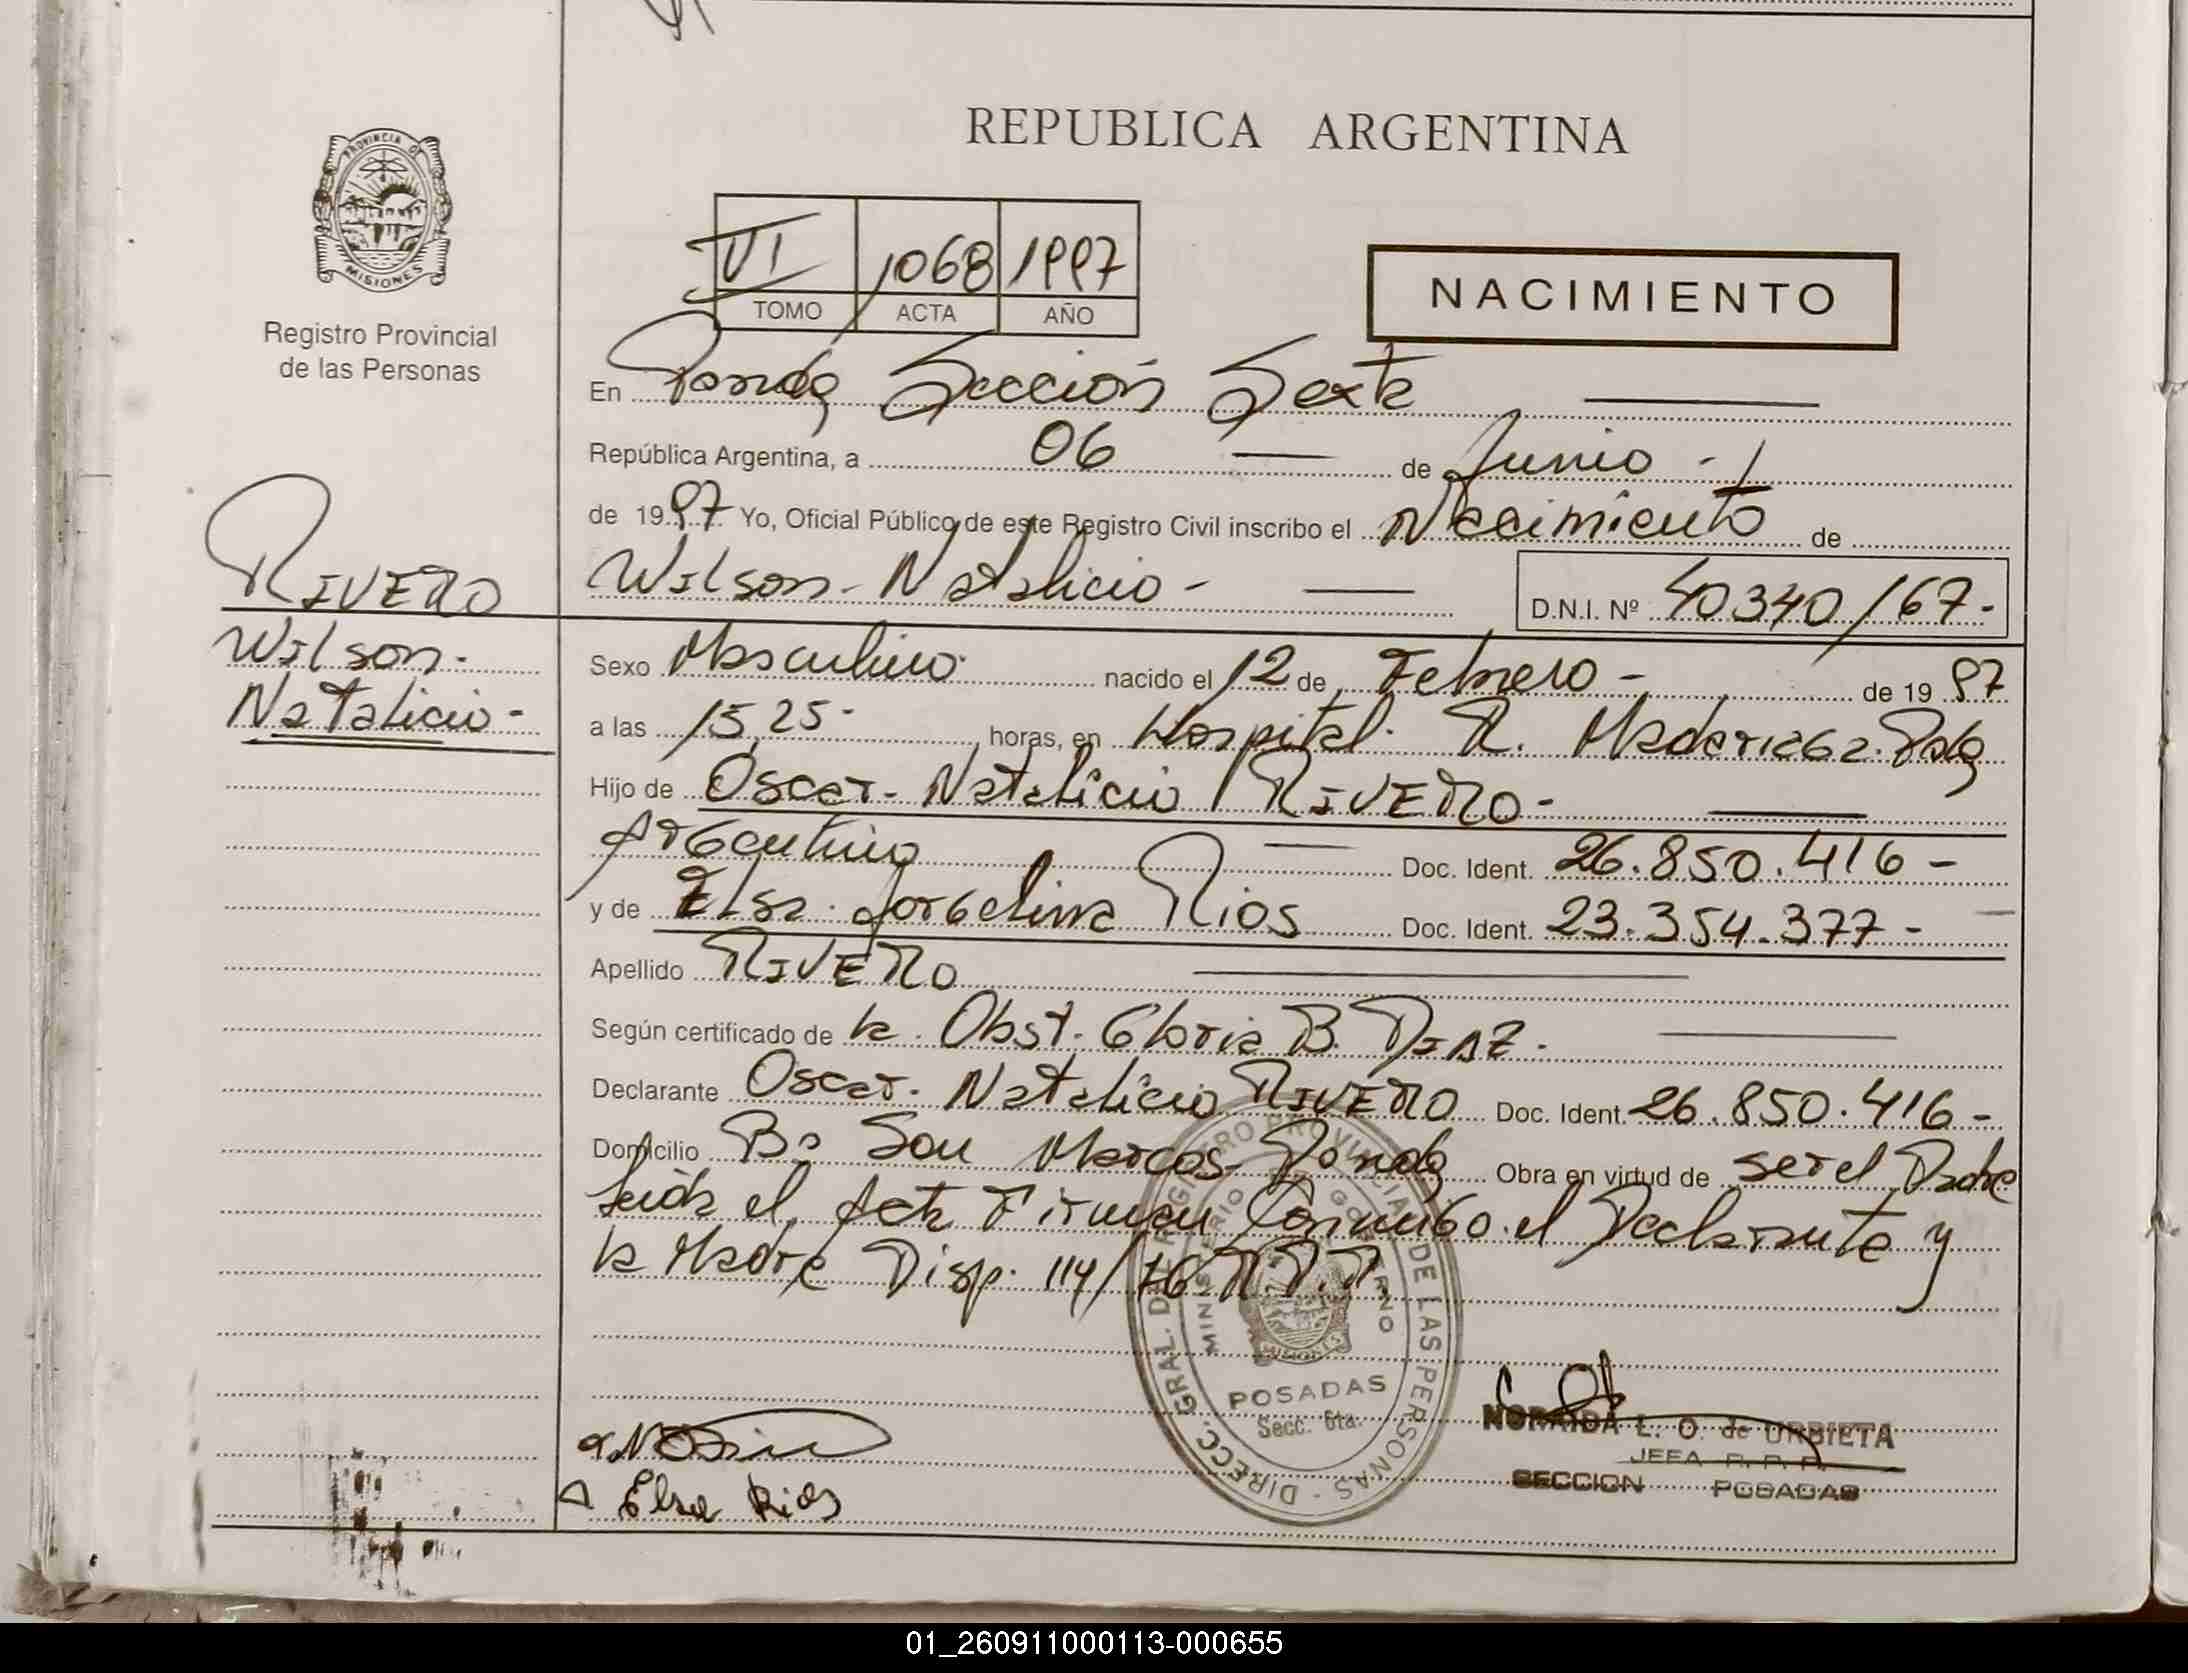 REPUBLICA ARGENTINA
PROVINCIA DE
MISIONES
Registro Provincial
de las Personas
VI 1068 1997
TOMO ACTA AÑO
NACIMIENTO
En Posadas Sección Sexta
República Argentina, a 06 de Junio -
de 1997 Yo, Oficial Público de este Registro Civil inscribo el Nacimiento de
Wilson - Natalicio - D.N.I. Nº 40340167.-
RIVERO
Wilson -
Natalicio -
Sexo Masculino nacido el 12 de Febrero - de 1997
a las 15,25 - horas, en Hospital R. Madariaga. Pdas
Hijo de Oscar - Natalicio RIVERO -
Argentino Doc. Ident. 26.850.416 -
y de Elsa Jorgelina Rios Doc. Ident. 23.354.377 -
Apellido RIVERO
Según certificado de la Obst. Gloria B. DIAZ -
Declarante Oscar - Natalicio RIVERO Doc. Ident. 26.850.416 -
Domicilio Bº San Marcos - Posadas Obra en virtud de ser el Padre
Leída el Acta Firman Conmigo el Declarante y
la Madre Disp. 114/76 R.P.P.
DIRECC. GRAL. DE REGISTRO PROVINCIAL DE LAS PERSONAS -
MINISTERIO GOBIERNO
MISIONES
POSADAS
Secc. 6ta.
NORAIDA L. O. de URBIETA
JEFA R. P. P.
SECCION POSADAS
Elsa Rios
01_260911000113-000655